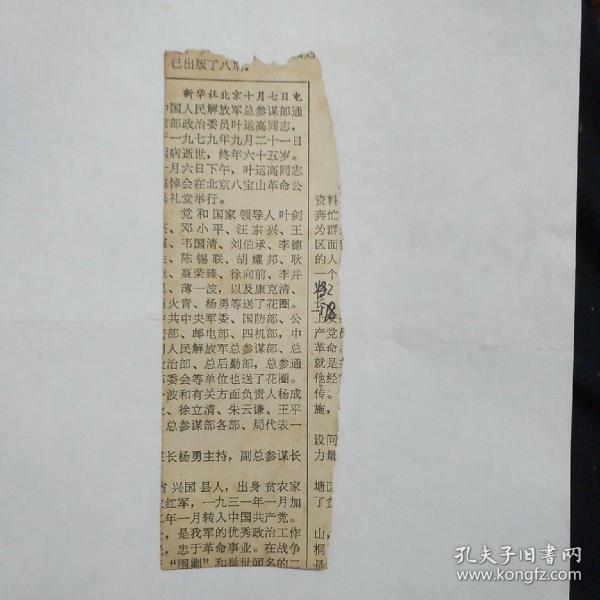 已出版了八期。
新华社北京十月七日电
中国人民解放军总参谋部通
部政治委员叶运高同志，
一九七九年九月二十一日
因病逝世，终年六十五岁。
月六日下午，叶运高同志
追悼会在北京八宝山革命公
礼堂举行。
党和国家领导人叶剑
、邓小平、汪东兴、王
、韦国清、刘伯承、李德
、陈锡联、胡耀邦、耿
、聂荣臻、徐向前、李井
、薄一波，以及康克清、
火青、杨勇等送了花圈。
中共中央军委、国防部、公
部、邮电部、四机部，中
国人民解放军总参谋部、总
政治部、总后勤部，总参通
委会等单位也送了花圈。
一波和有关方面负责人杨成
、徐立清、朱云谦、王平
总参谋部各部、局代表一
长杨勇主持，副总参谋长
省兴国县人，出身贫农家
红军，一九三一年一月加
年一月转入中国共产党。
，是我军的优秀政治工作
，忠于革命事业。在战争
“围剿”和举世闻名的二
资料
奔忙
为群
区面
的人
一个
产党
革命。
就是
他经
传。
施，
设问
力量
塘区
了
山，
桐
是
孔夫子旧书网
www.kongfz.com